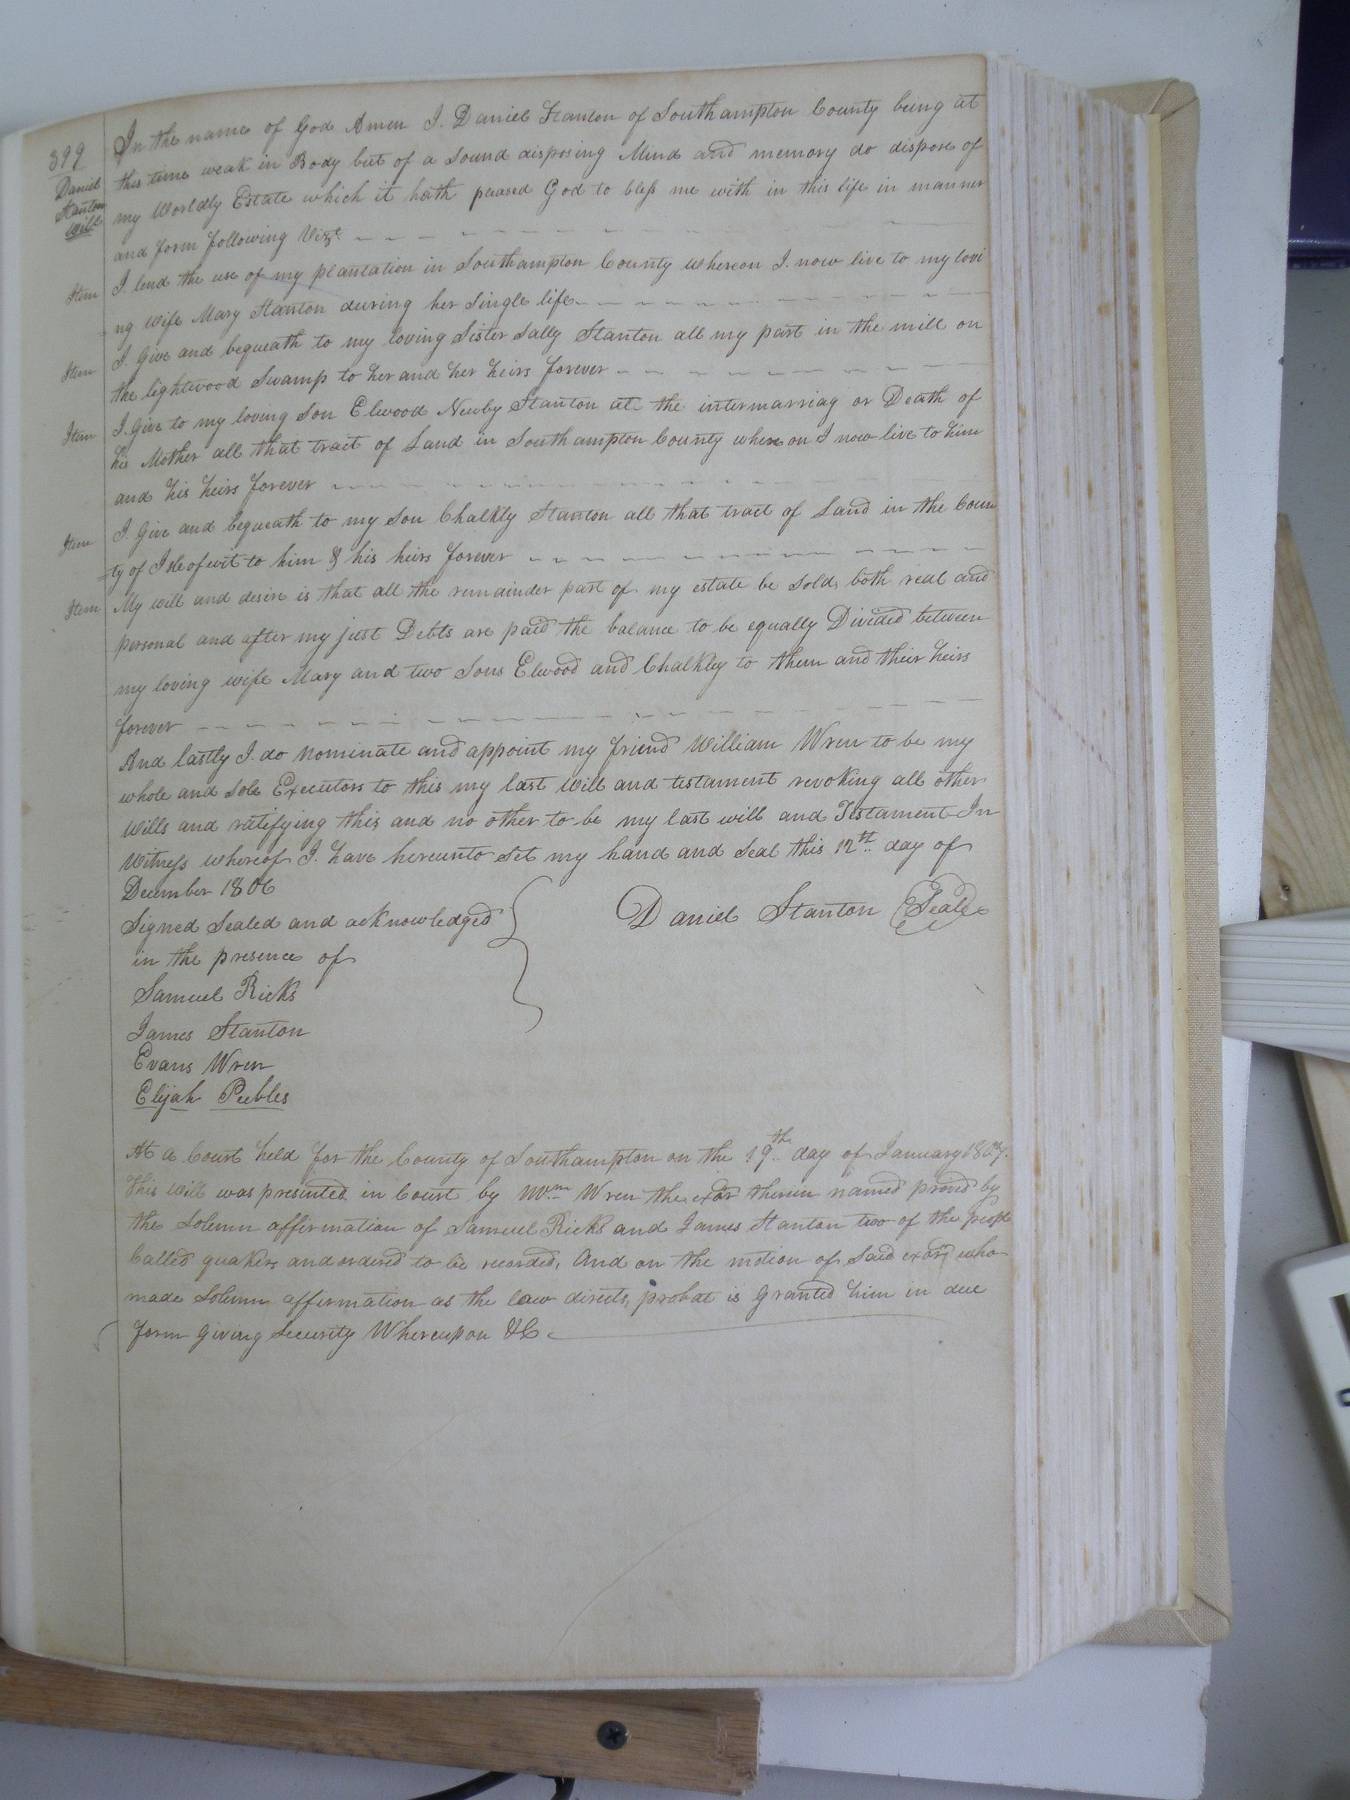 399
Daniel
Stanton
Will
In the name of God Amen I. Daniel Stanton of Southampton County being at
this time weak in Body but of a Sound disposing Mind and memory do dispose of
my Worldly Estate which it hath peased God to bless me with in this life in manner
and form following Vizt
Item I lend the use of my plantation in Southampton County whereon I. now live to my lovi
ng wife Mary Stanton during her Single life
Item I. Give and bequeath to my loving Sister Sally Stanton all my part in the mill on
the lightwood Swamp to her and her heirs forever
Item I. Give to my loving Son Elwood Newby Stanton at the intermarriag or Death of
his Mother all that tract of Land in Southampton County where on I now live to him
and his heirs forever
Item I. Give and bequeath to my Son Chalkly Stanton all that tract of Land in the Coun
ty of Isle of wit to him & his heirs forever
Item My will and desire is that all the remainder part of my estate be Sold both real and
personal and after my just Debts are paid the balance to be equally Divided between
my loving wife Mary and two Sons Elwood and Chalkley to them and their heirs
forever
And lastly I. do nominate and appoint my friend William Wren to be my
whole and Sole Executors to this my last will and testament revoking all other
Wills and ratifying this and no other to be my last will and Testament In
Witness whereof I. have hereunto Set my hand and Seal this 12th day of
December 1806
Signed Sealed and acknowledged
in the presence of
Daniel Stanton Seal
Samuel Ricks
James Stanton
Evans Wren
Elijah Peebles
At a Court held for the County of Southampton on the 19th day of January 1807.
This Will was presented in Court by Wm Wren the exor therein named proved by
the Solemn affirmation of Samuel Ricks and James Stanton two of the people
Called quakers and ordered to be recorded, And on the motion of Said exor who
made Solemn affirmation as the law directs, probat is Granted him in due
form Giving Security Whereupon &c